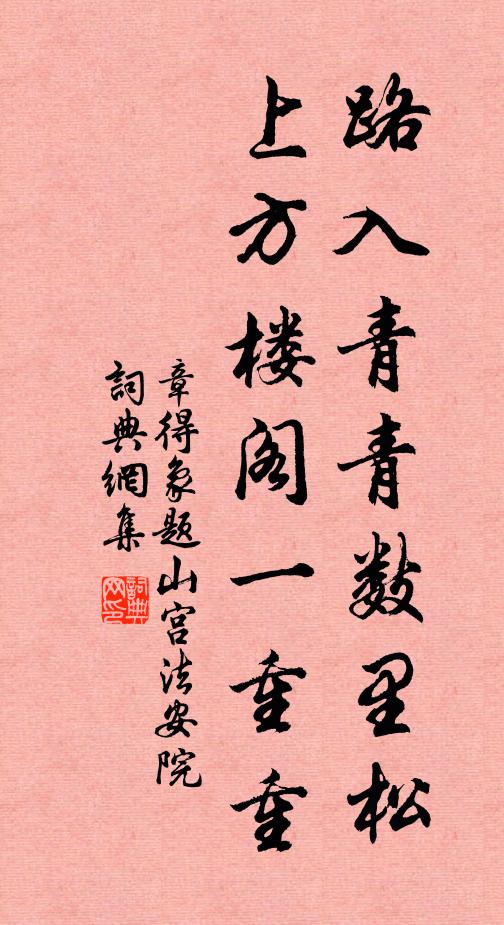 路入青青数里松
上方楼阁一重重
章得象题山宫法安院
詞典網集
詞典网印